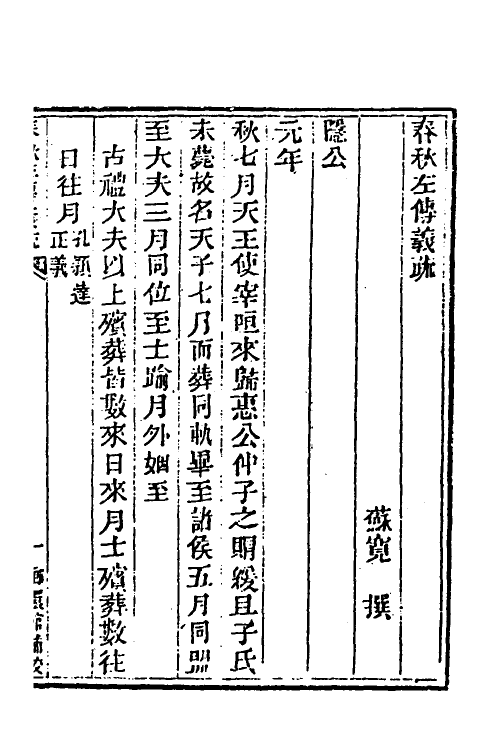 春秋左傳義疏
蘇寬 撰
隱公
元年
秋七月天王使宰咺來歸惠公仲子之賵緩且子氏
未薨故名天子七月而葬同軌畢至諸侯五月同盟
至大夫三月同位至士踰月外姻至
古禮大夫以上殯葬皆數來日來月士殯葬數往
日往月孔穎達正義
一